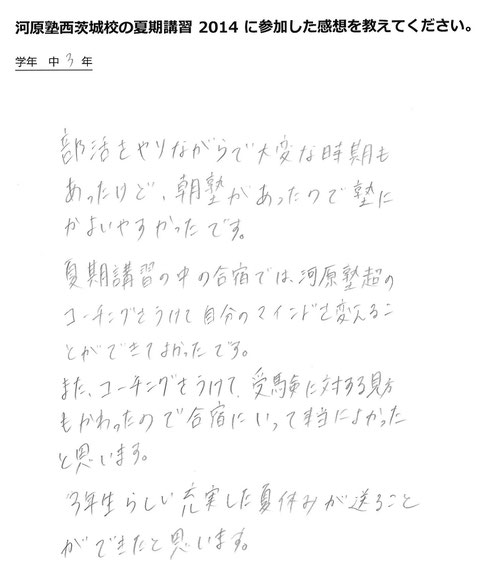 河原塾西茨城校の夏期講習 2014 に参加した感想を教えてください。
学年 中 3 年
部活をやりながらで大変な時期も
あったけど、朝塾があったので塾に
かよいやすかったです。
夏期講習の中の合宿では、河原塾超の
コーチングをうけて自分のマインドを変えるこ
とができてよかったです。
また、コーチングをうけて、受験に対する見方
もかわったので合宿にいって本当によかった
と思います。
3年生らしい充実した夏休みが送ること
ができたと思います。